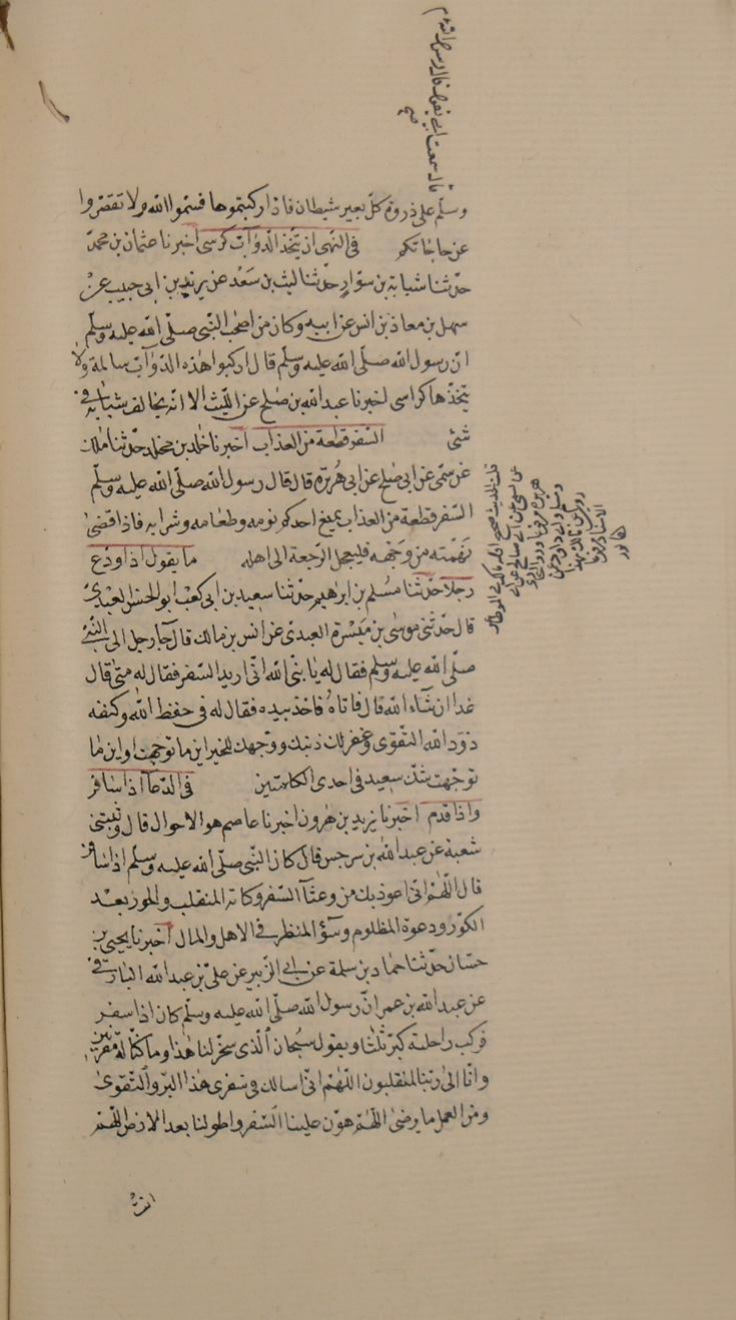 قال سمعت ابي يقول قال رسول الله صلم
صح
وسلّم على ذروة كلّ بعير شيطان فاذا ركبتموها فسمّوا الله ولا تقصّروا
عن حاجاتكم في النهى ان يتّخذ الدّوابّ كرسى اخبرنا عثمان بن محمّد
حدّثنا شبابة بن سوّار حدّثنا ليث بن سَعْد عن يزيد بن ابى حبيب عن
سهل بن معاذ بن انس عن ابيه وكان من اصحٰب النّبى صلّى الله عليه وسلّم
انّ رسول الله صلّى الله عليه وسلّم قال اركبوا هٰذه الدّوابّ سالمة ولا
تتخذّها كراسى اخبرنا عبد الله بن صٰلح عن اللّيث الا انّه يخالف شبابة في
شئ السّفر قطعة من العذاب اخبرنا خٰلد بن مخلد حدّثنا مٰلك
عن سمّى عن ابى صٰلح عن ابى هُريرة قال قال رسول الله صلّى الله عليه وسلّم
السّفر قطعة من العذاب يمنع احدكم نومه وطعامه وشرابه فاذا قضى
نَهْمته من وَجهه فليعجل الرّجعة الى اهله ما يقول اذا ودّع
رجلا حدّثنا مُسْلم بن ابرهيم حدّثنا سعيد بن ابى كعْب ابو الحسَن العبدىّ
قال حدّثنى موسى بن مَيْسَرة العبدى عن انس بن مالك قال جآء رجل الى النّبىّ
صلّى الله عليه وسلم فقال له يا نبىّ الله انّى اريد السّفر فقال له متى قال
غدا ان شآء الله قال فاتاهُ فاخذ بيده فقال له في حفظ الله وكنفه
زوّد الله التّقوى وغفر لك ذنبك ووجّهك للخير اين ما توجّهت او اين ما
توجّهت شكّ سعيد في احدى الكلمتين في الدّعآ اذا سافر
واذا قدم اخبرنا يزيد بن هٰرون اخبرنا عاصم هو الاحوال قال وثبتنى
شعبة عن عبد الله بن سرجس قال كان النّبى صلّى الله عليه وسلّم اذا سافر
قال اللّهمّ انّى اعوذ بك من وعثآ السّفر وكابة المنقلب والحور بعد
الكوْر ودعوة المظلوم وسوء المنظر في الاهل والمال اخبرنا يحيى بن
حسّان حدّثنا حمّاد بن سلمة عن ابى الزّبير عن علىّ بن عبد الله البارقى
عن عبد الله بن عمر انّ رسول الله صلّى الله عليه وسلّم كان اذا سفر
فركب راحلته كبّر ثلثا ويقول سُبحان الّذى سخّر لنا هٰذا وما كنّا له مقرنين
وانّا الى ربّنا لمنقلبون اللّهمّ انّى اسالك في سفرى هٰذا البرّ والتّقوى
ومن العمل ما يرضى اللّهمّ هوّن علينا السّفر واطو لنا بعد الارض اللّهمّ
انت